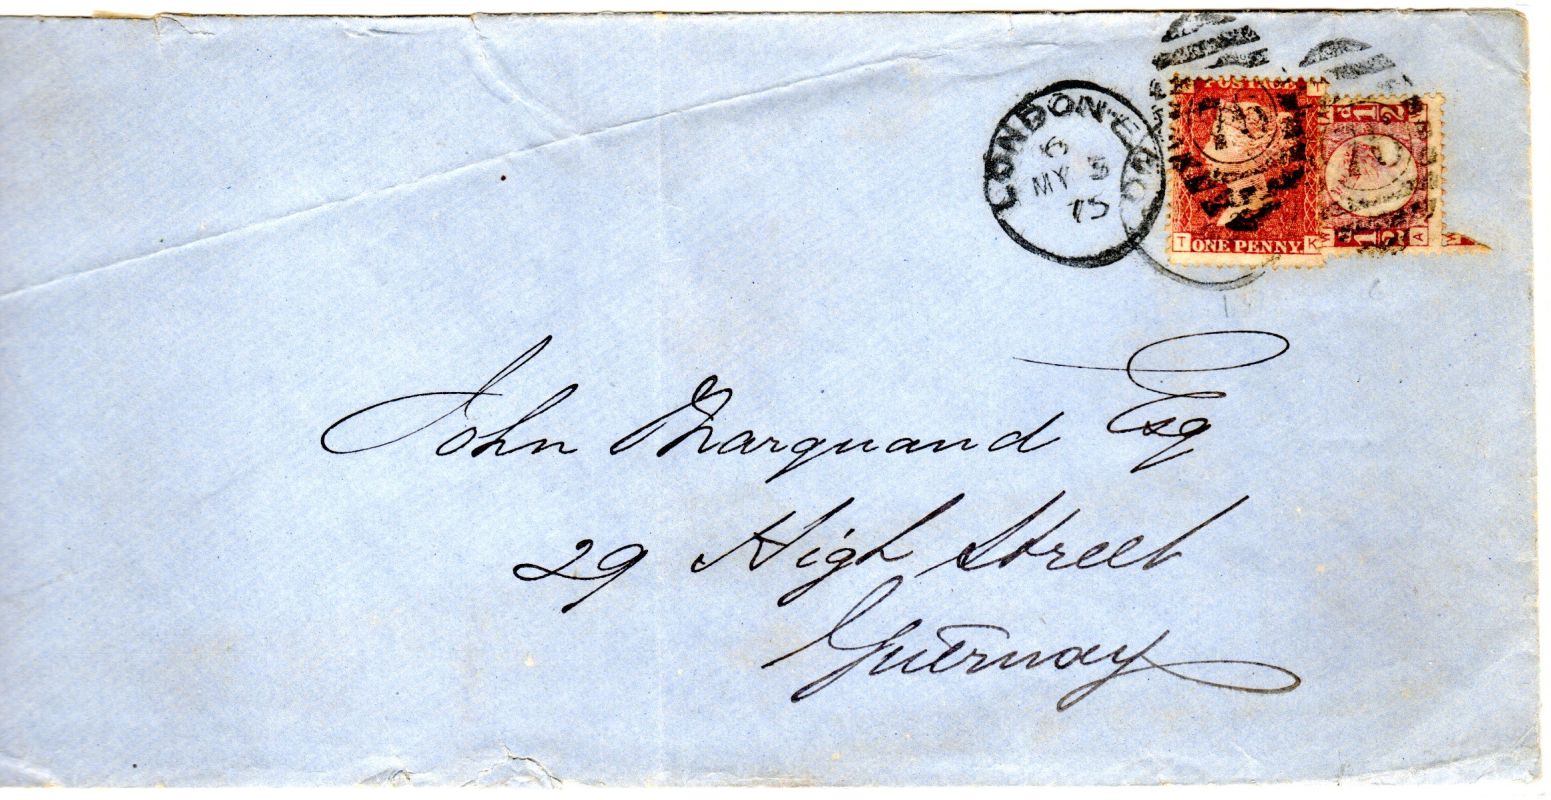 LONDON·E.C
6
MY 5
75
POSTAGE
T
K
ONE PENNY
T K
78
W A
John Marquand Esq
29 High Street
Guernsey